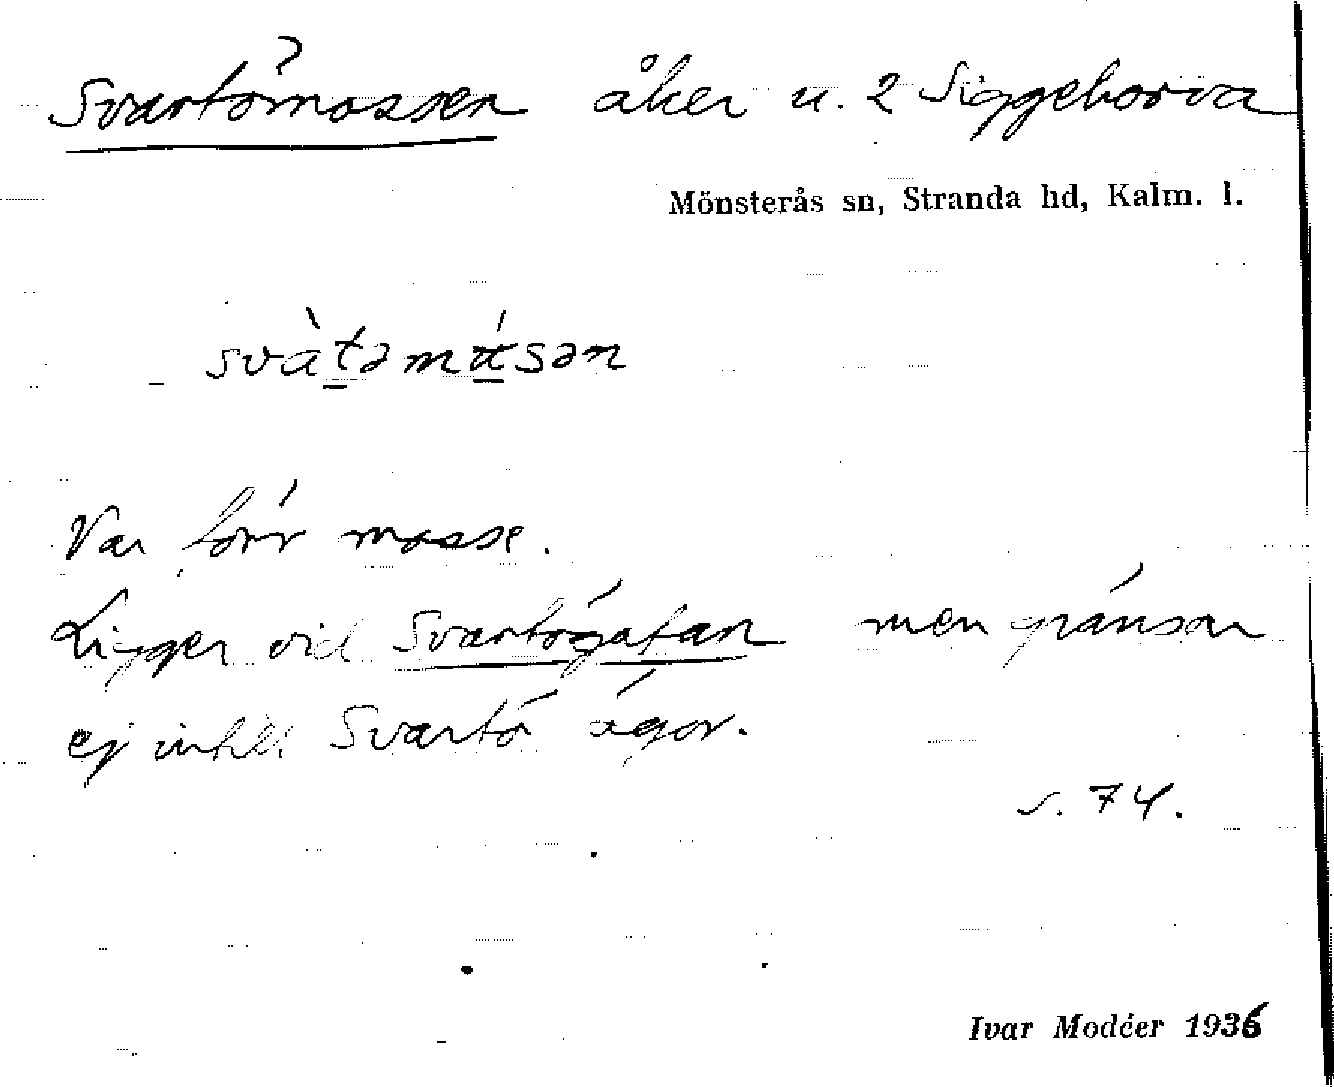 Svartömossen åker u. 2 Siggehorva
Mönsterås sn, Stranda hd, Kalm. l.
svàtəmásən
Var förr mosse.
Ligger vid Svartögatan men gränsar
ej intill Svartö ägor.
s. 74.
Ivar Modéer 1936